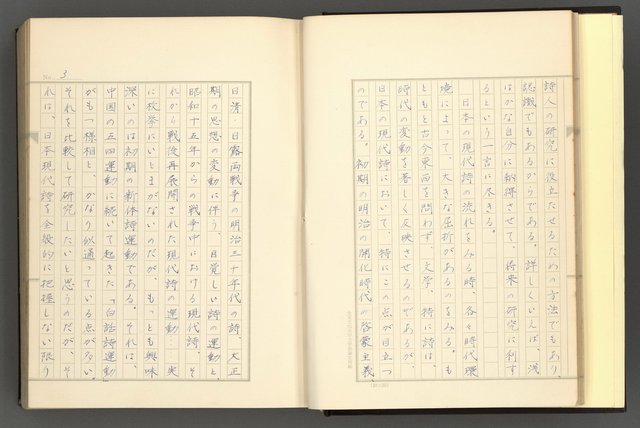 詩人の研究に役立たせるための方法でもあり、
認識でもあるからである。詳しくいえば、浅
はかな自分に納得させて、将来の研究に利す
るという一言に尽きる。
日本の現代詩の流れをみる時、各々時代環
境によって、大きな屈折があるのをみる。も
ともと古今東西を問わず、文学、特に詩は、
時代の変動を著しく反映させるのであるが、
日本の現代詩において、特にこの点が目立つ
のである。初期の明治の開化時代の啓蒙主義、
No. 3
日清・日露両戦争の明治三十年代の詩、大正
期の思想の変動に伴う、目覚しい詩の運動と、
昭和十五年からの戦争中における現代詩、そ
れから戦後再展開された現代詩の運動……実
に枚挙にいとまがないのだが、もっとも興味
深いのは初期の新体詩運動である。それは、
中国の五四運動に続いて起きた「白話詩運動」
がもつ様相と、かなり似通っている点が多い。
それを比較し、研究したいと思うのだが、そ
れは、日本現代詩を全般的に把握しない限り